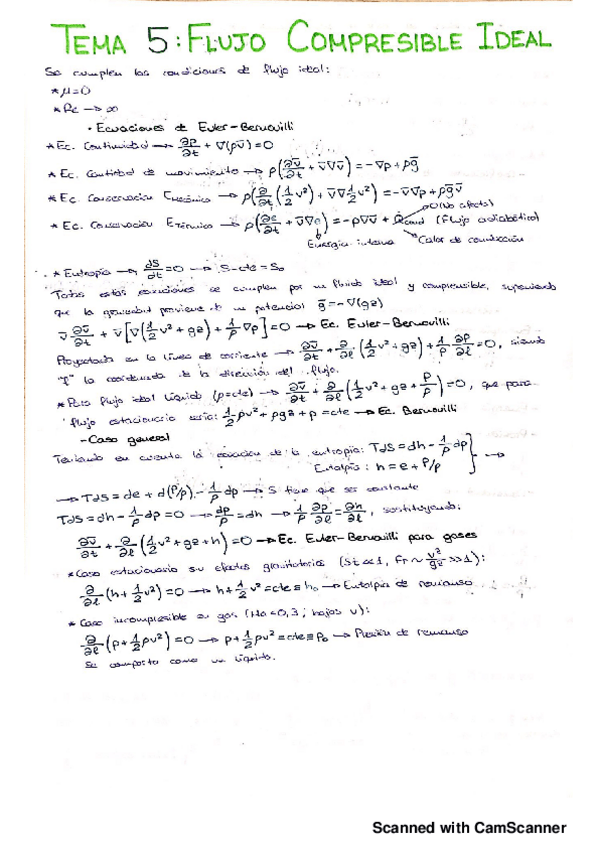 TEMA 5: FLUJO COMPRESIBLE IDEAL
Se cumplen las condiciones de flujo ideal:
* μ=0
* Re → ∞
· Ecuaciones de Euler-Bernouilli
* Ec. Continuidad → ∂ρ/∂t + ∇(ρv̄) = 0
* Ec. Cantidad de movimiento → ρ(∂v̄/∂t + v̄∇v̄) = -∇p + ρḡ
* Ec. Conservación Emecánica → ρ(∂/∂t (1/2 v²) + v̄∇ 1/2 v²) = -v̄∇p + ρḡv̄
* Ec. Conservación Etérmica → ρ(∂e/∂t + v̄∇e) = -p∇v̄ + Qcond (Flujo adiabático)
0 (No afecta)
Energía interna Calor de conducción
* Entropía → dS/dt = 0 → S = cte = S₀
Todas estas ecuaciones se cumplen por un fluido ideal y compresible, suponiendo
que la gravedad proviene de un potencial ḡ = -∇(gz)
v̄ ∂v̄/∂t + v̄[∇(1/2 v² + gz) + 1/ρ ∇p] = 0 → Ec. Euler-Bernouilli
Proyectando en la línea de corriente → ∂v̄/∂t + ∂/∂l (1/2 v² + gz) + 1/ρ ∂p/∂l = 0, siendo
"l" la coordenada de la dirección del flujo.
* Para flujo ideal líquido (ρ=cte) → ∂v̄/∂t + ∂/∂l (1/2 v² + gz + p/ρ) = 0, que para
flujo estacionario sería: 1/2 ρv² + ρgz + p = cte → Ec. Bernouilli
- Caso general
Teniendo en cuenta la ecuación de la entropía: TdS = dh - 1/ρ dp
Entalpía: h = e + P/ρ } →
→ TdS = de + d(P/ρ) - 1/ρ dp → S tiene que ser constante
TdS = dh - 1/ρ dp = 0 → dp/ρ = dh → 1/ρ ∂p/∂l = ∂h/∂l, sustituyendo:
∂v̄/∂t + ∂/∂l (1/2 v² + gz + h) = 0 → Ec. Euler-Bernouilli para gases
* Caso estacionario sin efectos gravitatorios (St≪1, Fr ~ v²/gz ≫1):
∂/∂l (h + 1/2 v²) = 0 → h + 1/2 v² = cte ≡ h₀ → Entalpía de remanso
* Caso incompresible en gas (Ma<0,3; bajas v):
∂/∂l (p + 1/2 ρv²) = 0 → p + 1/2 ρv² = cte ≡ p₀ → Presión de remanso
Se comporta como un líquido.
Scanned with CamScanner